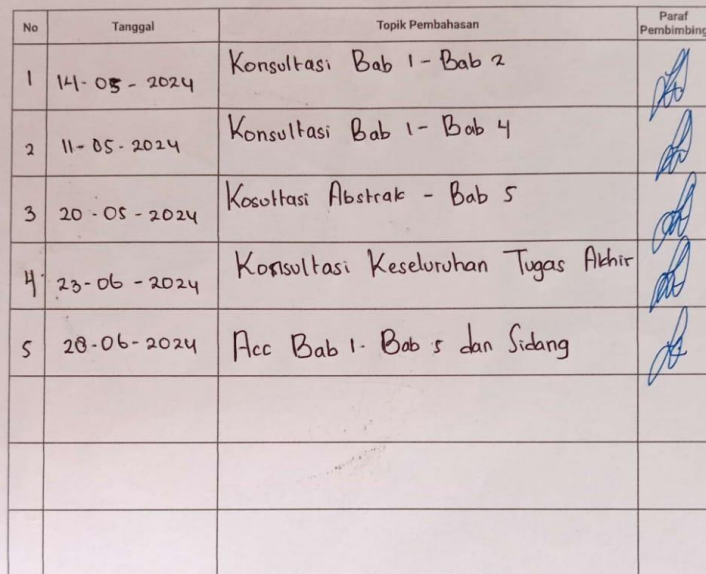 No Tanggal Topik Pembahasan Paraf Pembimbing
1 14-05-2024 Konsultasi Bab 1 - Bab 2
2 11-05-2024 Konsultasi Bab 1 - Bab 4
3 20-05-2024 Kosultasi Abstrak - Bab 5
4 23-06-2024 Konsultasi Keseluruhan Tugas Akhir
5 28-06-2024 Acc Bab 1- Bab 5 dan Sidang